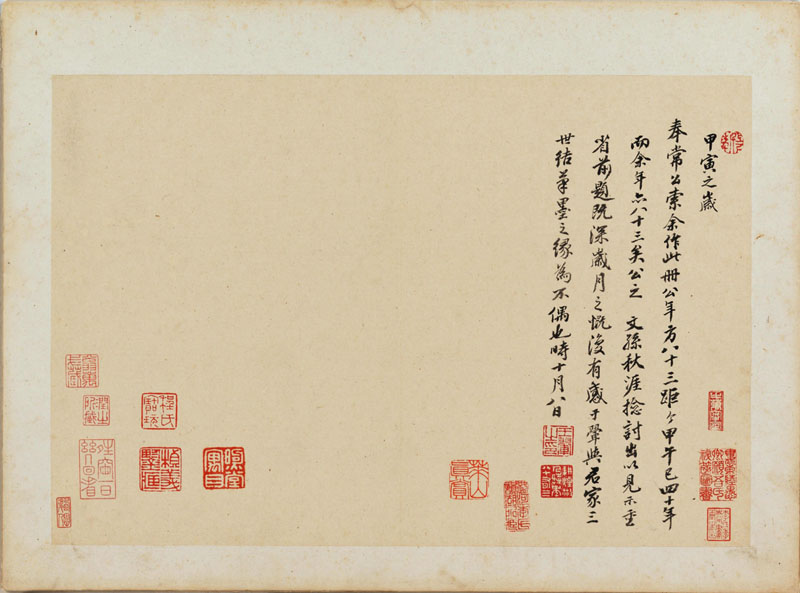 甲寅之歲
奉常公索余作此冊公年方八十三距今甲午已四十年
而余年亦八十三矣公之 文孫秋涯檢討出以見示重
省前題既深歲月之慨復有感于翬與君家三
世結筆墨之緣為不偶也時十月八日
萊山真賞